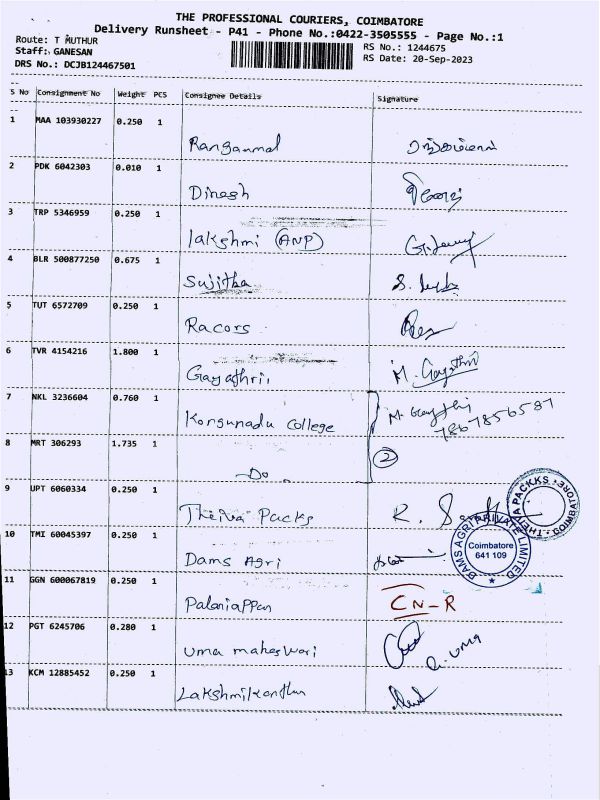 THE PROFESSIONAL COURIERS, COIMBATORE
Delivery Runsheet - P41 - Phone No.:0422-3505555 - Page No.:1
Route: T MUTHUR
RS No.: 1244675
Staff: GANESAN
RS Date: 20-Sep-2023
DRS No.: DCJB124467501
S No Consignment No Weight PCS Consignee Details Signature
1 MAA 103930227 0.250 1
Ranganmal ரங்கம்மாள்
2 PDK 6042303 0.010 1
Dinesh
3 TRP 5346959 0.250 1
lakshmi (ANP)
4 BLR 500877250 0.675 1
Sujitha
5 TUT 6572709 0.250 1
Racors
6 TVR 4154216 1.800 1
Gayathrii M. Gayathri
7 NKL 3236604 0.760 1
Kongunadu College M. Gayathri
7867856587
8 MRT 306293 1.735 1
Do 2
9 UPT 6060334 0.250 1
Theiva Packs
THEIVA PACKKS COIMBATORE
10 TMI 60045397 0.250 1
Dams Agri
DAMS AGRI PRIVATE LIMITED
Coimbatore
641 109
11 GGN 600067819 0.250 1
Palaniappan CN-R
12 PGT 6245706 0.280 1
uma maheswari R. UMA
13 KCM 12885452 0.250 1
Lakshmikanthan